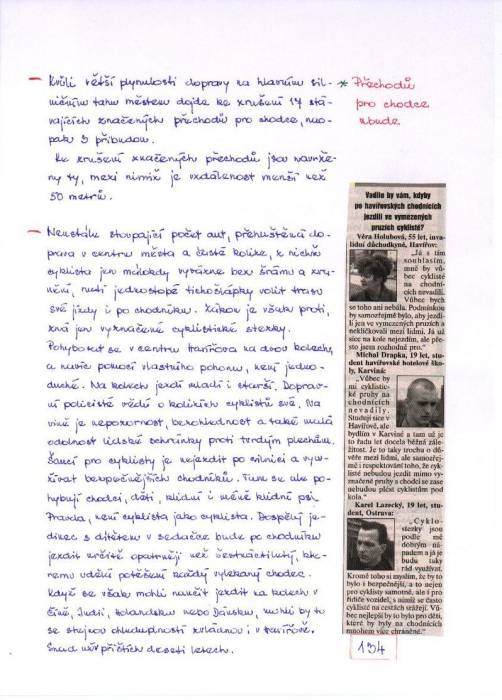 – Kvůli větší plynulosti dopravy na hlavním sil-
ničním tahu městem dojde ke zrušení 17 stá-
vajících značených přechodů pro chodce, nao-
pak 9 přibudou.
Ke zrušení značených přechodů jsou navrže-
ny ty, mezi nimiž je vzdálenost menší než
50 metrů.
* Přechodů
pro chodce
ubude
– Neustále stoupající počet aut, přehuštěná do-
prava v centru města a časté kolize, z nichž
cyklista jen málokdy vyvázne bez šrámu a zra-
nění, nutí jednostopé tichošlápky volit trasu
své jízdy i po chodníku. Zákon je však proti,
zná jen vyznačené cyklistické stezky.
Pohybovat se v centru Havířova na dvou kolech,
a navíc pomocí vlastního pohonu, není jedno-
duché. Na kolech jezdí mladí i starší. Doprav-
ní policisté vědí o kolizích cyklistů své. Na
vině je nepozornost, bezohlednost a také malá
odolnost lidské schránky proti tvrdým plechům.
Šancí pro cyklisty je nejezdit po silnici a vyu-
žívat bezpečnějších chodníků. Tam se ale po-
hybují chodci, děti, klidní i méně klidní psi.
Pravda, není cyklista jako cyklista. Dospělý je-
dinec s dítětem v sedačce bude po chodníku
jezdit určitě opatrněji než šestnáctiletý, kte-
rému udělá potěšení každý vylekaný chodec.
Když se však mohli naučit jezdit na kolech v
Číně, Indii, Holandsku nebo Dánsku, mohli by to
se stejnou ohleduplností zvládnout i v Havířově.
Snad už v příštích deseti letech.
Vadilo by vám, kdyby
po havířovských chodnících
jezdili ve vymezených
pruzích cyklisté?
Věra Holubová, 55 let, inva-
lidní důchodkyně, Havířov:
„Já s tím
souhlasím,
mně by vů-
bec cyklisté
na chodní-
cích nevadili.
Vůbec bych
se toho ani nebála. Podmínkou
by samozřejmě bylo, aby jezdi-
li jen ve vymezených pruzích a
nekličkovali mezi lidmi. Já už
sice na kole nejezdím, ale pře-
sto jsem rozhodně pro.“
Michal Drapka, 19 let, stu-
dent havířovské hotelové ško-
ly, Karviná:
„Vůbec by
mi cyklistic-
ké pruhy na
chodnících
nevadily.
Studuji sice v
Havířově, ale
bydlím v Karviné a tam už je
to řadu let docela běžná záleži-
tost. Je to taky trochu o důvě-
ře mezi lidmi, ale samozřej-
mě i respektování toho, že cyk-
listé nebudou jezdit mimo vy-
značené pruhy a chodci se zase
nebudou plést cyklistům pod
kola.“
Karel Lazecký, 19 let, stu-
dent, Ostrava:
„Cyklo-
stezky jsou
podle mě
dobrým ná-
padem a já je
budu taky
rád využívat.
Kromě toho si myslím, že by to
bylo i bezpečnější, a to nejen
pro cyklisty samotné, ale i pro
řidiče vozidel, s nimiž se často
cyklisté na cestách střážejí. Vů-
bec nejlepší by to bylo pro děti,
které by byly na chodnících
mnohem více chráněné.“
134